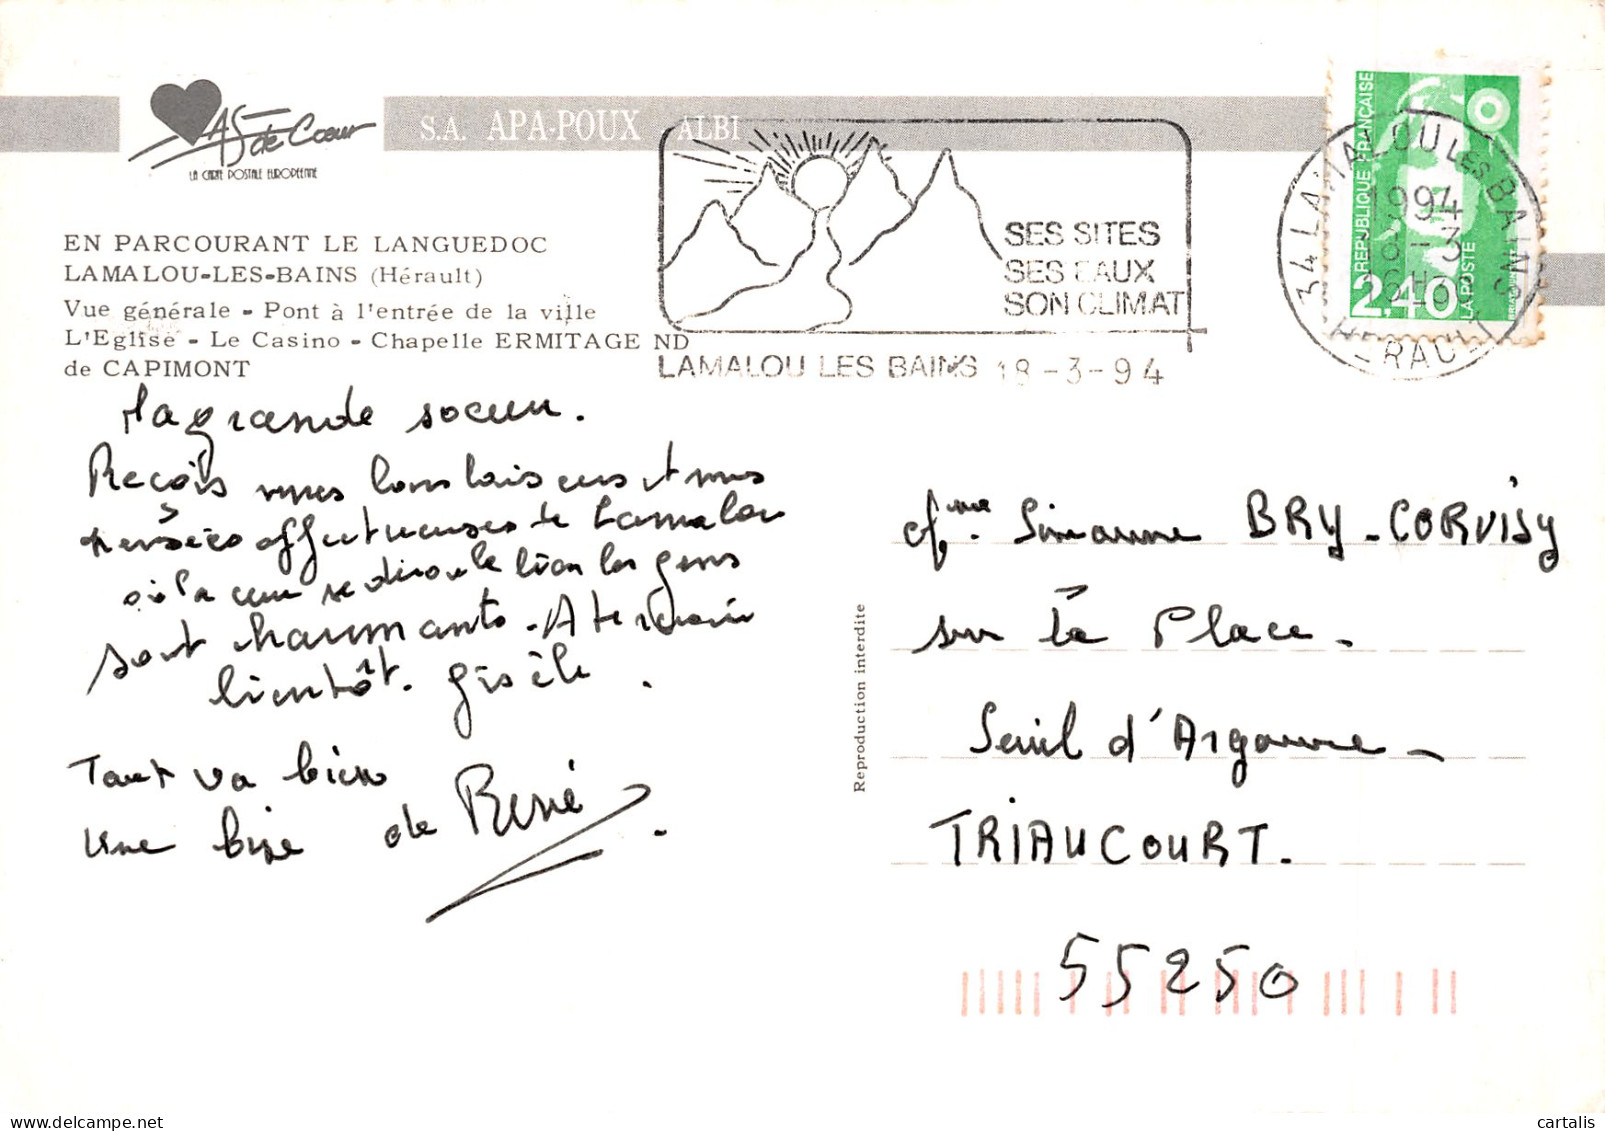 As de Cœur
LA CARTE POSTALE EUROPÉENNE
S.A. APA-POUX ALBI
EN PARCOURANT LE LANGUEDOC
LAMALOU-LES-BAINS (Hérault)
Vue générale - Pont à l'entrée de la ville
L'Eglise - Le Casino - Chapelle ERMITAGE ND
de CAPIMONT
SES SITES
SES EAUX
SON CLIMAT
LAMALOU LES BAINS 18-3-94
34 LAMALOU LES BAINS
1994
18-3
16H
HERAULT
REPUBLIQUE FRANÇAISE
2,40
LA POSTE
Ma grande soeur.
Reçois mes bons baisers et mes
pensées affectueuses de Lamalou
où la cure se déroule bien les gens
sont charmants. A te revoir
bientôt. Gisèle.
Tout va bien
une bise de René.
Mme. Simonne BRY-CORVISY
sur la Place.
Seuil d'Argonne-
TRIAUCOURT.
55250
Reproduction interdite
cartalis